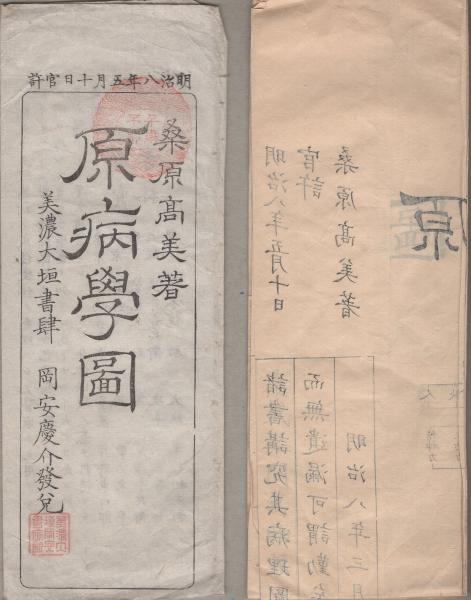 明治八年五月十日官許
桑原髙美著
原病學圖
美濃大垣書肆 岡安慶介發兌
原
桑原髙美著
官許
明治八年五月十日
明治八年三月
而無遺漏可謂勤矣
諸書講究其病理圖